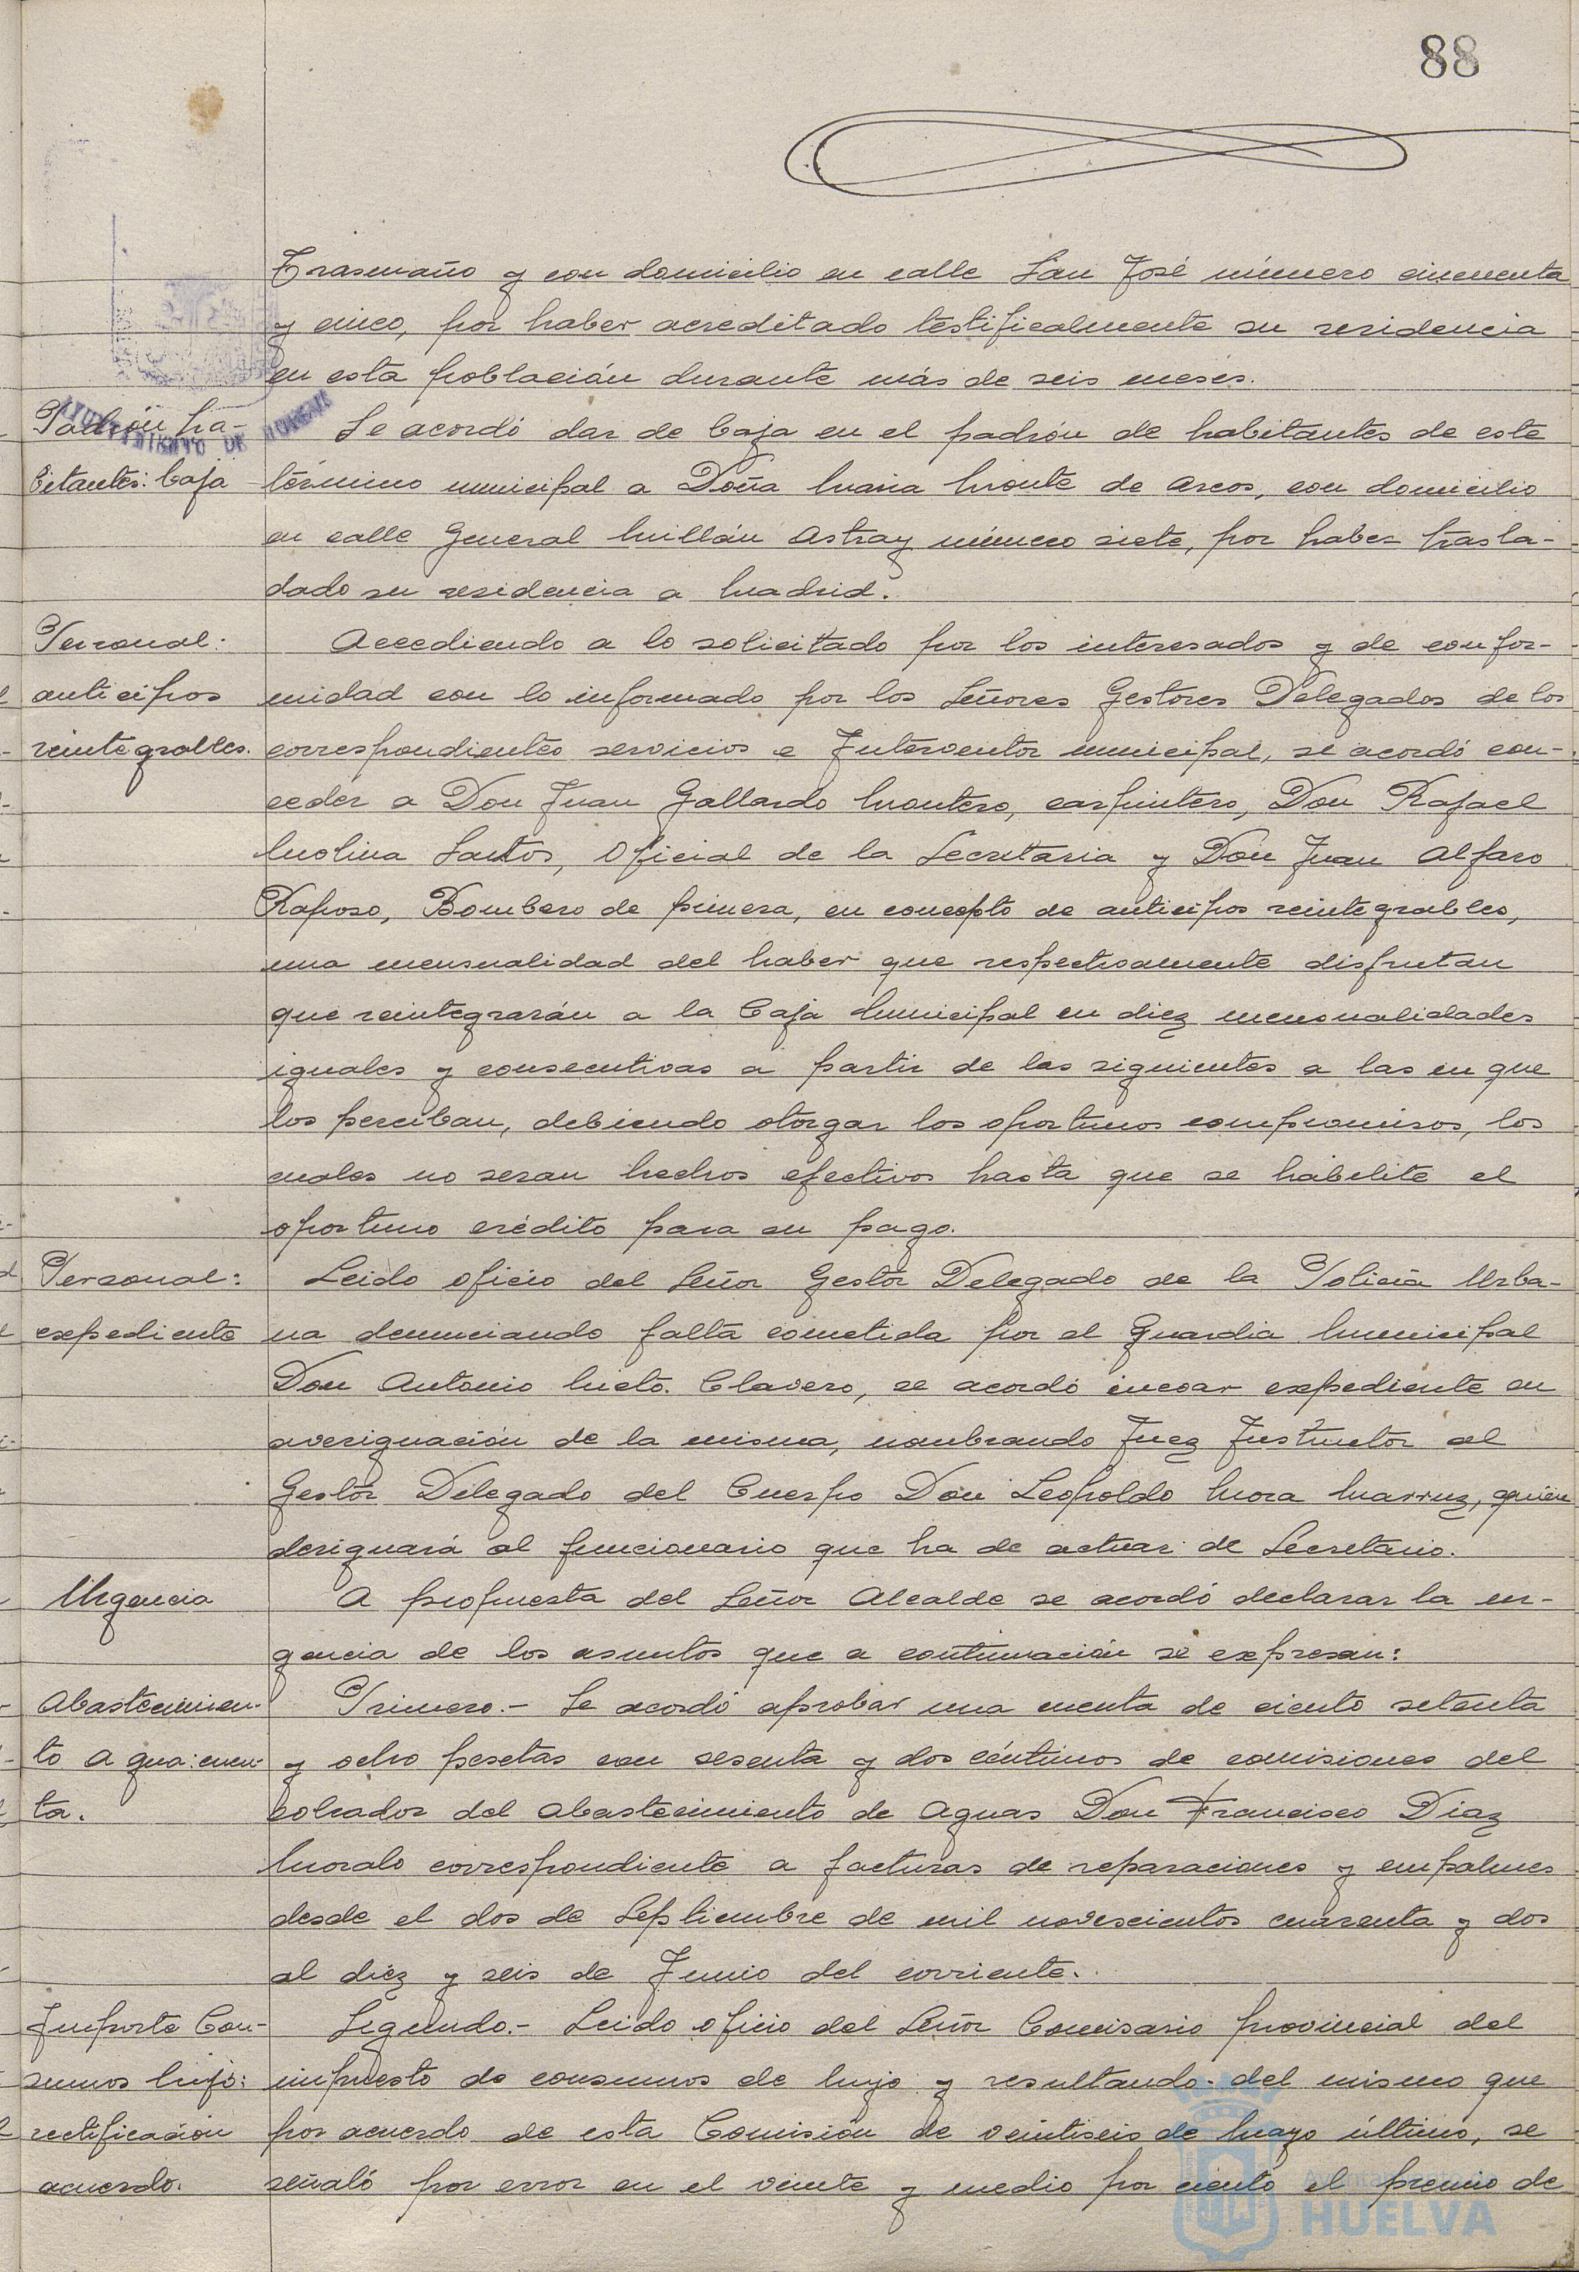 88
Trasmaño y con domicilio en calle San José número cincuenta
y cinco, por haber acreditado testificalmente su residencia
en esta población durante más de seis meses.
Padrón ha-
bitantes: baja
AYUNTAMIENTO DE HUELVA
Se acordó dar de baja en el padrón de habitantes de este
término municipal a Doña Maria Monte de Arcos, con domicilio
en calle General Millán Astray número siete, por haber trasla-
dado su residencia a Madrid.
Personal:
anticipos
reintegrables.
Accediendo a lo solicitado por los interesados y de confor-
midad con lo informado por los Señores Gestores Delegados de los
correspondientes servicios e Interventor municipal, se acordó con-
ceder a Don Juan Gallardo Montero, carpintero, Don Rafael
Molina Santos, Oficial de la Secretaria y Don Juan Alfaro
Raposo, Bombero de primera, en concepto de anticipos reintegrables,
una mensualidad del haber que respectivamente disfrutan
que reintegrarán a la Caja Municipal en diez mensualidades
iguales y consecutivas a partir de las siguientes a las en que
los perciban, debiendo otorgar los oportunos compromisos, los
cuales no seran hechos efectivos hasta que se habilite el
oportuno crédito para su pago.
Personal:
expediente
Leido oficio del Señor Gestor Delegado de la Policia Urba-
na denunciando falta cometida por el Guardia Municipal
Don Antonio Nieto Clavero, se acordó incoar expediente en
averiguación de la misma, nombrando Juez Instructor al
Gestor Delegado del Cuerpo Don Leopoldo Mora Marruz, quien
designará al funcionario que ha de actuar de Secretario.
Urgencia
A propuesta del Señor Alcalde se acordó declarar la ur-
gencia de los asuntos que a continuación se expresan:
Abastecimien-
to Agua: cuen-
ta.
Primero.- Se acordó aprobar una cuenta de ciento setenta
y ocho pesetas con sesenta y dos céntimos de comisiones del
cobrador del Abastecimiento de Aguas Don Francisco Diaz
Moralo correspondiente a facturas de reparaciones y empalmes
desde el dos de Septiembre de mil novescientos cuarenta y dos
al diez y seis de Junio del corriente.
Impuesto Con-
sumos lujo:
rectificación
acuerdo.
Segundo.- Leido oficio del Señor Comisario provincial del
impuesto de consumos de lujo y resultando del mismo que
por acuerdo de esta Comisión de veintiseis de Mayo último, se
señaló por error en el veinte y medio por ciento el premio de
Ayuntamiento de
HUELVA